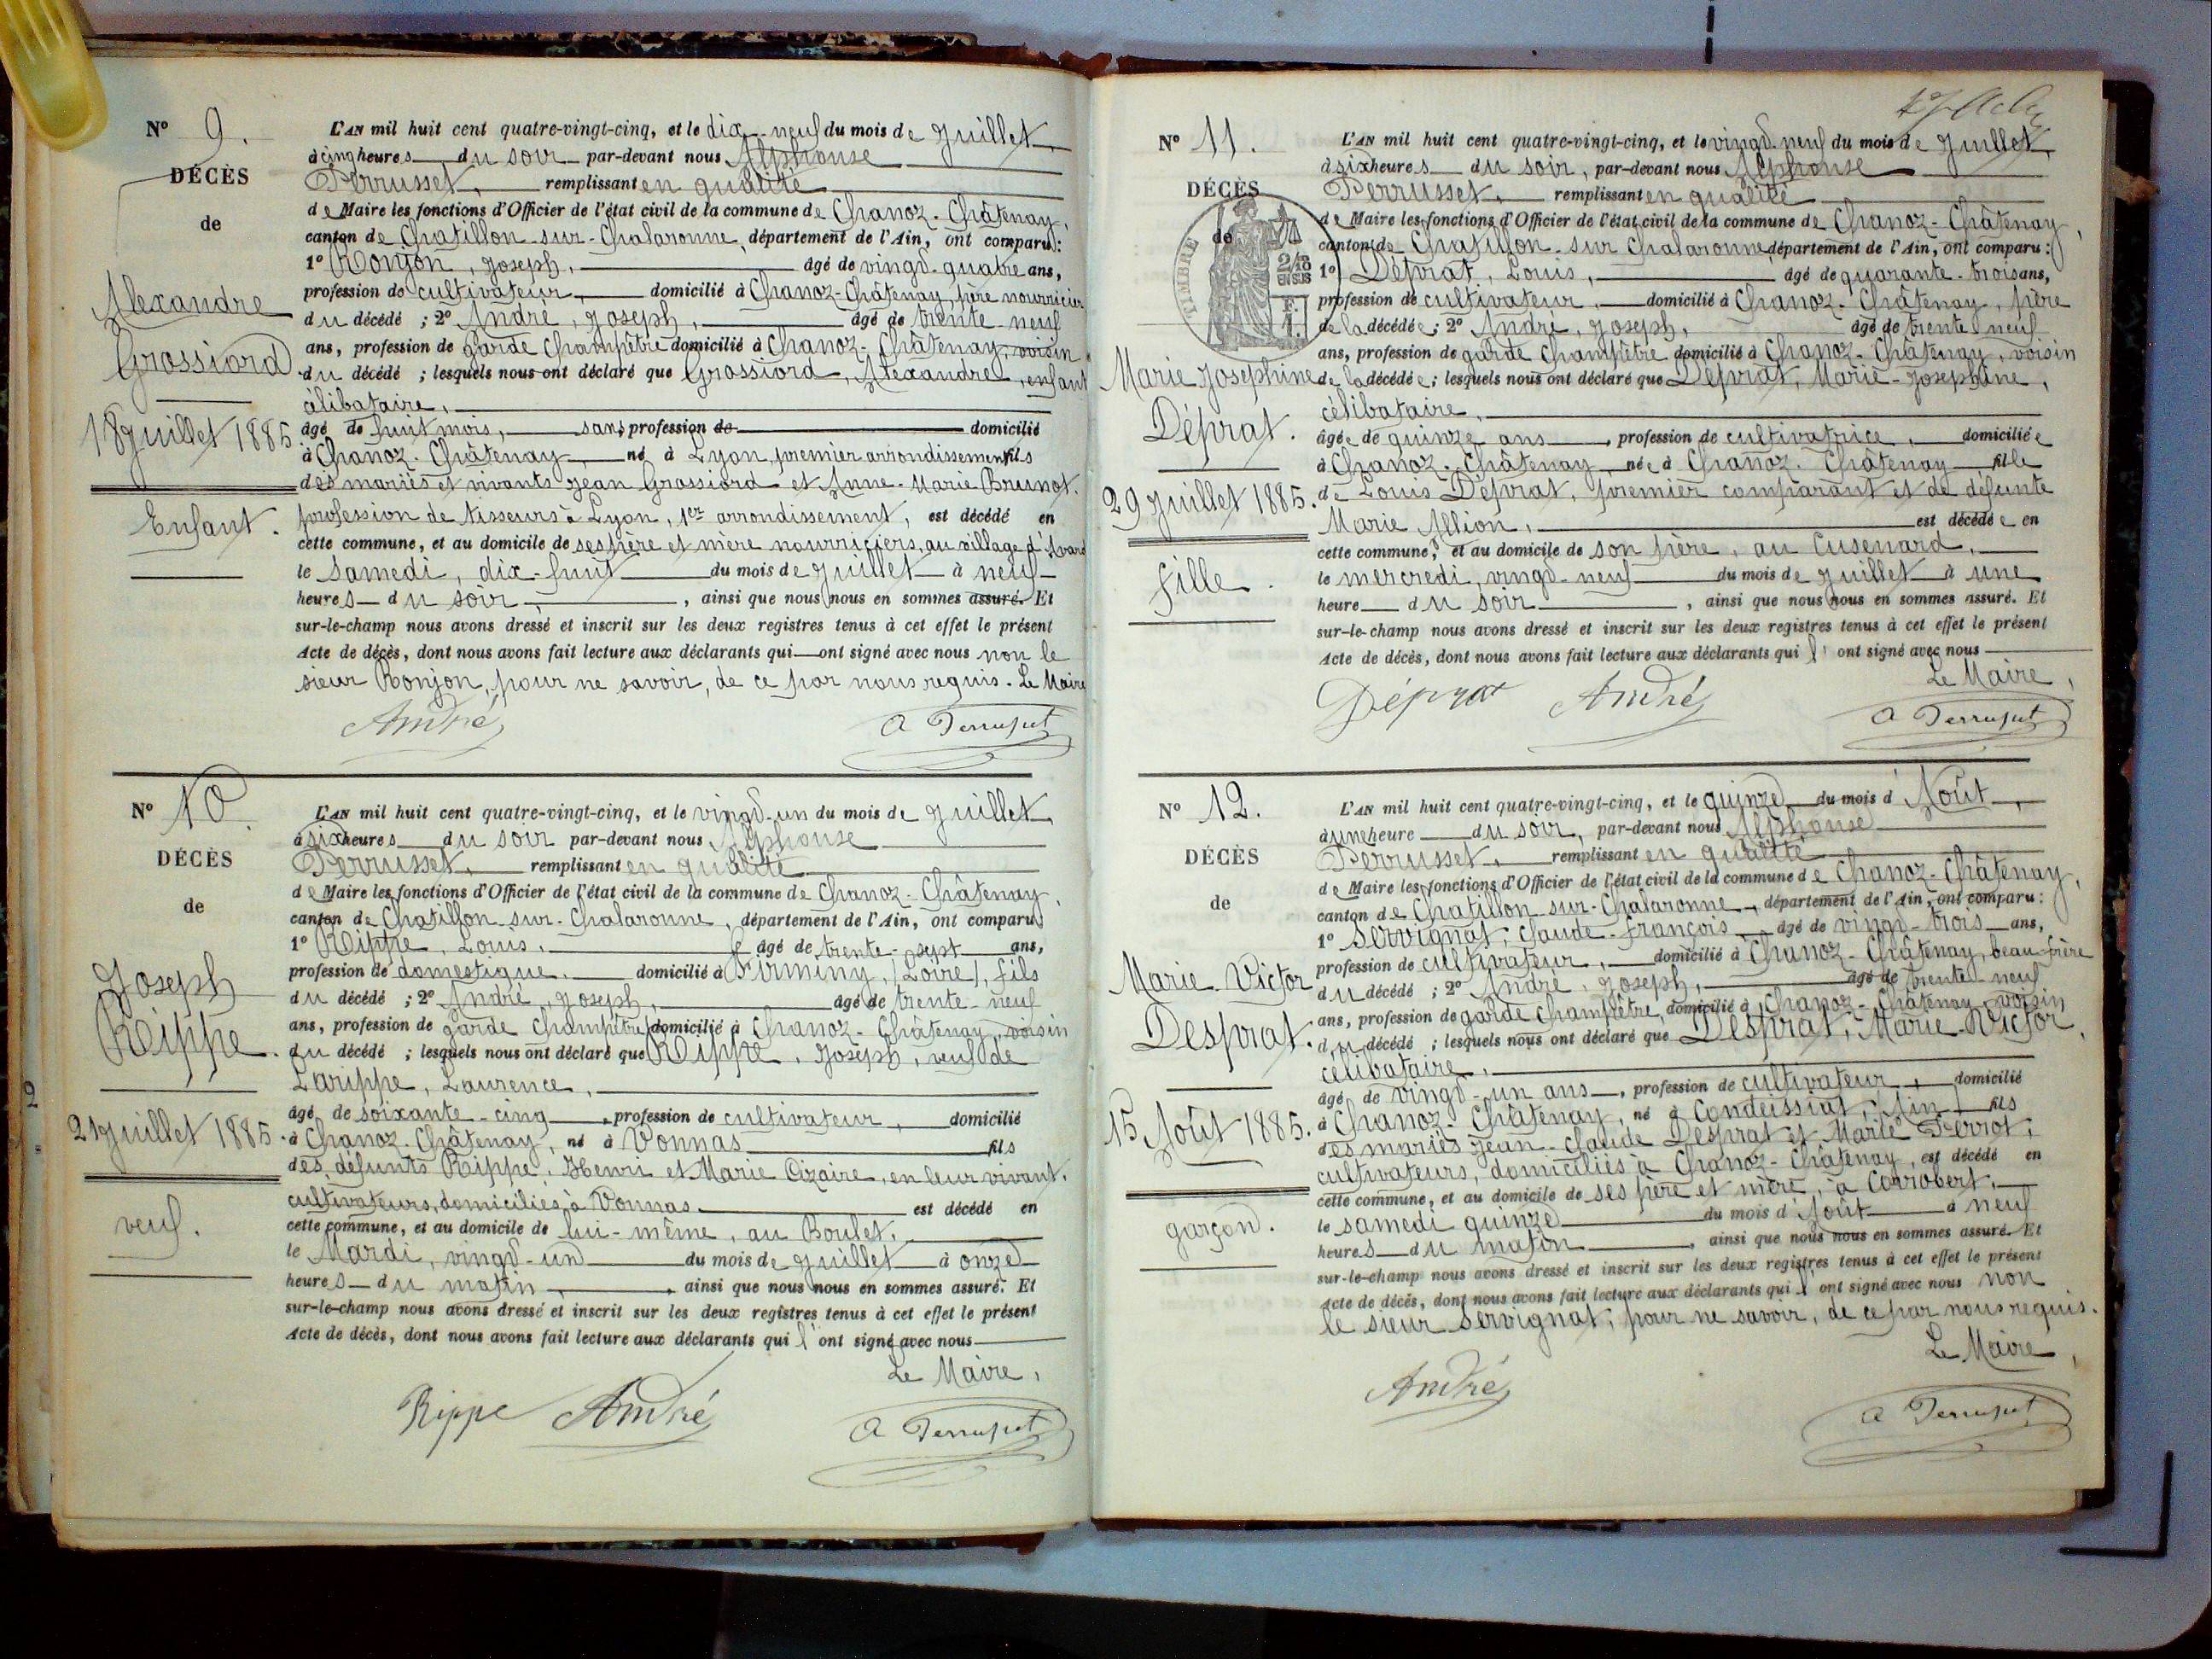 N° 9.
DÉCÈS
de
Alexandre
Grossiord
18 Juillet 1885
Enfant.
L'AN mil huit cent quatre-vingt-cinq, et le dix-neuf du mois de Juillet,
à cinq heures du soir par-devant nous Alphonse
Perrusset, remplissant en qualité
de Maire les fonctions d'Officier de l'état civil de la commune de Chanoz-Châtenay,
canton de Chatillon-sur-Chalaronne, département de l'Ain, ont comparu:
1° Ronjon, Joseph, âgé de vingt-quatre ans,
profession de cultivateur, domicilié à Chanoz-Châtenay, père nourricier
du décédé ; 2° André, Joseph, âgé de trente-neuf
ans, profession de garde champêtre domicilié à Chanoz-Châtenay, voisin
du décédé ; lesquels nous ont déclaré que Grossiord, Alexandre, enfant
célibataire,
âgé de huit mois, sans profession de domicilié
à Chanoz-Châtenay, né à Lyon, premier arrondissement fils
des mariés et vivants Jean Grossiord et Anne-Marie Brunot.
profession de tisseurs à Lyon, 1er arrondissement, est décédé en
cette commune, et au domicile de ses père et mère nourriciers, au village d'
le samedi, dix-huit du mois de Juillet à neuf
heures du soir, ainsi que nous nous en sommes assuré. Et
sur-le-champ nous avons dressé et inscrit sur les deux registres tenus à cet effet le présent
Acte de décès, dont nous avons fait lecture aux déclarants qui ont signé avec nous non le
sieur Ronjon, pour ne savoir, de ce par nous requis. Le Maire
André A Perrusset
N° 10.
DÉCÈS
de
Joseph
Rippe.
21 Juillet 1885.
veuf.
L'AN mil huit cent quatre-vingt-cinq, et le vingt-un du mois de Juillet,
à six heures du soir par-devant nous Alphonse
Perrusset, remplissant en qualité
de Maire les fonctions d'Officier de l'état civil de la commune de Chanoz-Châtenay,
canton de Chatillon-sur-Chalaronne, département de l'Ain, ont comparu
1° Rippe, Louis, âgé de trente-sept ans,
profession de domestique, domicilié à Firminy, (Loire), fils
du décédé ; 2° André, Joseph, âgé de trente-neuf
ans, profession de garde champêtre domicilié à Chanoz-Châtenay, voisin
du décédé ; lesquels nous ont déclaré que Rippe, Joseph, veuf de
Larippe, Laurence,
âgé de soixante-cinq, profession de cultivateur, domicilié
à Chanoz-Châtenay, né à Vonnas fils
des défunts Rippe, Henri et Marie Cizaire, en leur vivant,
cultivateurs, domiciliés à Vonnas est décédé en
cette commune, et au domicile de lui-même, au Boulet,
le Mardi, vingt-un du mois de Juillet à onze
heures du matin, ainsi que nous nous en sommes assuré. Et
sur-le-champ nous avons dressé et inscrit sur les deux registres tenus à cet effet le présent
Acte de décès, dont nous avons fait lecture aux déclarants qui l'ont signé avec nous
Le Maire,
Rippe André A Perrusset
N° 11.
DÉCÈS
de
TIMBRE
2/10
EN SUS
F.
1.
Marie Josephine
Déprat.
29 Juillet 1885.
fille.
L'AN mil huit cent quatre-vingt-cinq, et le vingt-neuf du mois de Juillet,
à six heures du soir, par-devant nous Alphonse
Perrusset, remplissant en qualité
de Maire les fonctions d'Officier de l'état civil de la commune de Chanoz-Châtenay,
canton de Chatillon-sur-Chalaronne département de l'Ain, ont comparu:
1° Déprat, Louis, âgé de quarante-trois ans,
profession de cultivateur, domicilié à Chanoz-Châtenay, père
de la décédée ; 2° André, Joseph, âgé de trente-neuf
ans, profession de garde champêtre domicilié à Chanoz-Châtenay, voisin
de la décédée ; lesquels nous ont déclaré que Déprat, Marie-Josephine,
célibataire,
âgée de quinze ans, profession de cultivatrice, domiciliée
à Chanoz-Châtenay, née à Chanoz-Châtenay fille
de Louis Déprat, premier comparant et de défunte
Marie Allion, est décédée en
cette commune, et au domicile de son père, au Cusenard,
le mercredi, vingt-neuf du mois de Juillet à une
heure du soir, ainsi que nous nous en sommes assuré. Et
sur-le-champ nous avons dressé et inscrit sur les deux registres tenus à cet effet le présent
Acte de décès, dont nous avons fait lecture aux déclarants qui l'ont signé avec nous
Le Maire,
Déprat André A Perrusset
N° 12.
DÉCÈS
de
Marie Victor
Desprat.
15 Août 1885.
garçon.
L'AN mil huit cent quatre-vingt-cinq, et le quinze du mois d'Août,
à une heure du soir, par-devant nous Alphonse
Perrusset, remplissant en qualité
de Maire les fonctions d'Officier de l'état civil de la commune de Chanoz-Châtenay,
canton de Chatillon-sur-Chalaronne, département de l'Ain, ont comparu:
1° Servignat, Claude-François, âgé de vingt-trois ans,
profession de cultivateur, domicilié à Chanoz-Châtenay, beau-frère
du décédé ; 2° André, Joseph, âgé de trente-neuf
ans, profession de garde champêtre, domicilié à Chanoz-Châtenay, voisin
du décédé ; lesquels nous ont déclaré que Desprat, Marie-Victor,
célibataire,
âgé de vingt-un ans, profession de cultivateur, domicilié
à Chanoz-Châtenay, né à Condeissiat, (Ain) fils
des mariés Jean-Claude Desprat et Marie Perrot,
cultivateurs, domiciliés à Chanoz-Châtenay, est décédé en
cette commune, et au domicile de ses père et mère, à Corrobert,
le samedi quinze du mois d'Août à neuf
heures du matin, ainsi que nous nous en sommes assuré. Et
sur-le-champ nous avons dressé et inscrit sur les deux registres tenus à cet effet le présent
Acte de décès, dont nous avons fait lecture aux déclarants qui l'ont signé avec nous non
le sieur Servignat, pour ne savoir, de ce par nous requis.
Le Maire,
André A Perrusset